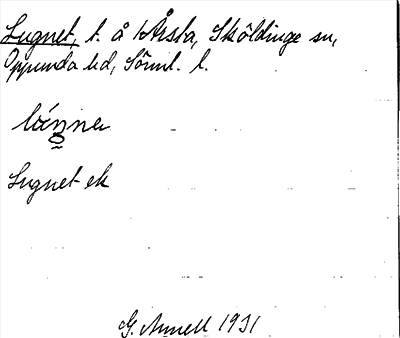 Lugnet, t. å Årsta, Sköldinge sn,
Oppunda hd, Söml. l.
Lugnet ek
G. Annell 1931